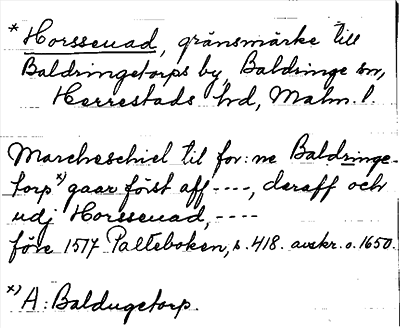 * Horsseuad, gränsmärke till
Baldringetorps by, Baldringe sn,
Herrestads hd, Malm. l.
Marcheschiel til for:ne Baldringe-
torp *) gaar först aff ----, deraff och
udj Horsseuad, ----
före 1517 Palteboken, s. 418. avskr. o. 1650.
*) A: Baldugetorp.